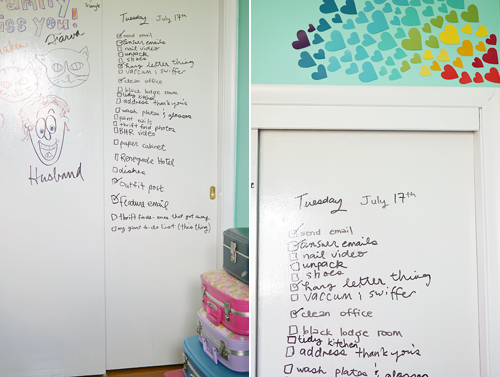 miss you!
Triangle
Husband
Tuesday July 17th
send email
answer emails
nail video
unpack
shoes
hang letter thing
vaccum & swiffer
clean office
black lodge room
tidy kitchen
address thank you's
wash plates & glasses
paint nails
thrift find photos
BHR video
paper cabinet
Renegade Hotel
dishes
Outfit post
Feature email
thrift finds - ones that got away
my giant to-do list (this thing)
Tuesday July 17th
send email
answer emails
nail video
unpack
shoes
hang letter thing
vaccum & swiffer
clean office
black lodge room
tidy kitchen
address thank you's
wash plates & glasses